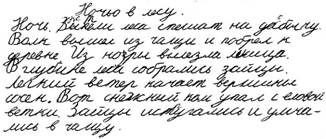 Ночью в лесу.
Ночь. Жители леса спешат на добычу.
Волк вышел из чащи и побрёл к
деревне. Из норы вылезла лисица.
В глубине леса собрались зайцы.
Лёгкий ветер качает вершины
сосен. Вот снежный ком упал с еловой
ветки. Зайцы испугались и умча-
лись в чащу.